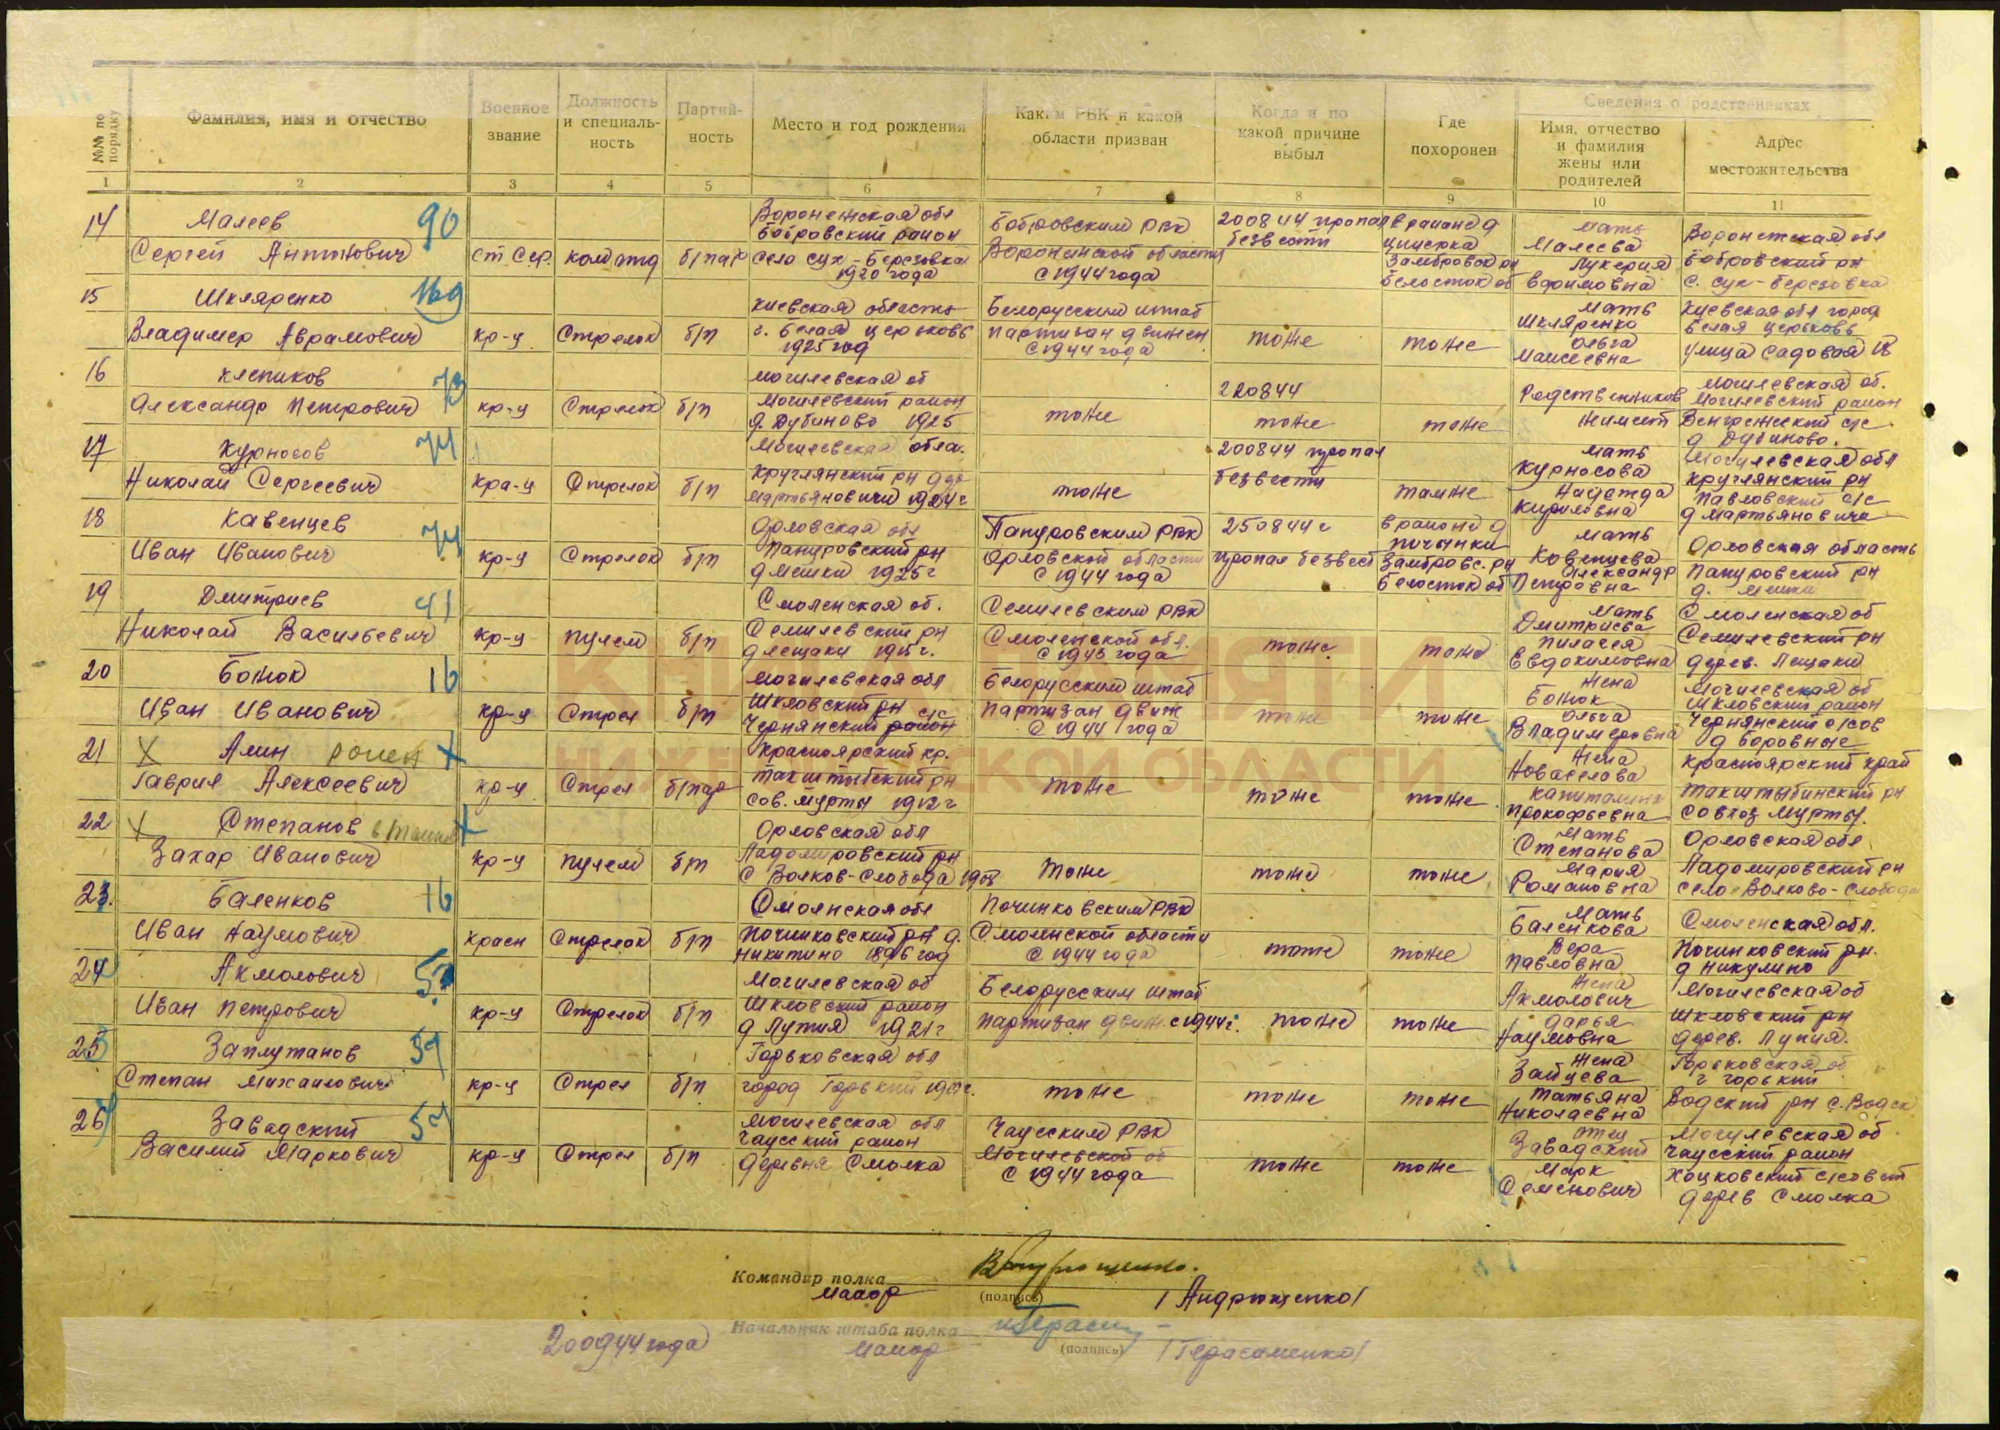 №№ по порядку
Фамилия, имя и отчество
Военное звание
Должность и специаль-ность
Партий-ность
Место и год рождения
Каким РВК и какой области призван
Когда и по какой причине выбыл
Где похоронен
Сведения о родственниках
Имя, отчество и фамилия жены или родителей
Адрес местожительства
1 2 3 4 5 6 7 8 9 10 11
14 Малеев 90 Воронежская обл Бобровским РВК 200844 пропал в районе д мать Воронежская обл
Бобровский район безвести Малеева
Сергей Антонович ст Сер. б/пар село сух-Березовка Воронежской области Замбровск рн Лукерия Бобровский рн
1920 года с 1944 года Белосток об Ефимовна с. сух-Березовка
15 Шкляренко 169 Киевская область Белорусским штаб мать Киевская обл город
Владимер Аврамович кр-ц Стрелок б/п г. Белая церьковь партизан движен тоже тоже Шкляренко Белая церьковь
1925 год с 1944 года Ольга Маисеевна улица Садовая
16 Клепиков 73 могилевская об 220844 Родственников могилевская об.
Александр Петрович кр-ц Стрелок б/п могилевский район тоже тоже тоже Могилевский район
д. Дубиново 1925 д Дубиново.
17 Курносов 74 Могилевская обла. 200844 пропал мать Могилевская обл
Николай Сергеевич кра-ц Стрелок б/п Круглянский рн тоже безвести тамже Курносова Круглянский рн
Мартьяновичи 1924 г Надежда Павловский с/с
Кириловна д Мартьяновичи
18 Кавенцев 74 Орловская обл 250844 г в районе д мать Орловская область
Иван Иванович кр-ц Стрелок б/п 1925 г Орловской области пропал безвест Замбровс. рн Ковенцева
с 1944 года Белосток об Петровна
19 Дмитриев 41 Смоленская об. Семлевским РВК мать Смоленская об
Николай Васильевич кр-ц пулем б/п Семлевский рн Смоленской обл. тоже тоже Дмитриева Семлевский рн
д лещаки с 1943 года Евдокимовна дерев. Лещаки
20 Божок 16 Могилевская обл Белорусским штаб жена Могилевская об
Иван Иванович кр-ц Стрел б/п Шкловский рн с/с партизан движ тоже тоже Божок Шкловский район
Чернянский район с 1944 года Ольга Владимеровна Чернянский с/сов
21 Х Алин Х Красноярский кр. жена Красноярский край
Гаврил Алексеевич кр-ц Стрел б/пар тоже тоже тоже Новаселова
сов. Мурты 1912 г Прокофьевна совхоз Мурты.
22 Х Степанов Х Орловская обл мать Орловская обл
Захар Иванович кр-ц пулем б/п Ладомировский рн тоже тоже тоже Степанова Ладомировский рн
с Волков-Слобода Мария Романовна село Волково-Слобода
23. Баленков 16 Смоленская обл Починковским РВК мать Смоленская обл.
Иван Наумович красн Стрелок б/п Починковский рн д. Смоленской области тоже тоже Баленкова Починковский рн.
1896 год с 1944 года Вера Павловна д Никулино
24 Акмолович Могилевская об Белорусским штаб жена Могилевская об
Иван Петрович кр-ц Стрелок б/п Шкловский район партизан движ. с 1944 г. тоже тоже Акмолович Шкловский рн
1921 г Дарья Наумовна
25 Заплутанов 59 Горьковская обл жена Горьковская об
Степан Михаилович кр-ц Стрел б/п город Горький тоже тоже тоже Зайцева г горький
Татьяна Николаевна
26 Завадский 57 Могилевская обл Чаусским РВК отец Могилевская об
Чаусский район Завадский Чаусский район
Василий Маркович кр-ц Стрел б/п деревня Смолка Могилевской об тоже тоже Марк
с 1944 года Семенович дерев Смолка
КНИГА ПАМЯТИ
НИЖЕГОРОДСКОЙ ОБЛАСТИ
Командир полка
майор (подпись) /Андрющенко/
Начальник штаба полка
200944 года майор (подпись) /Герасименко/